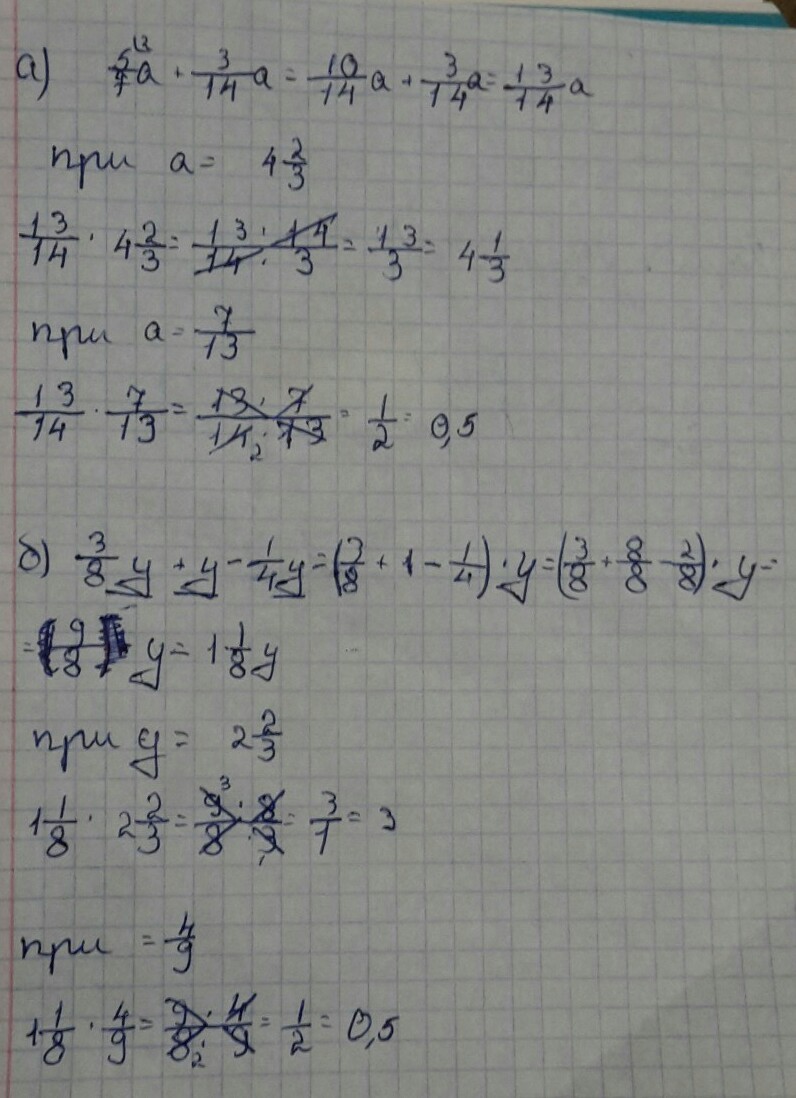 а) 5/7 a + 3/14 a = 10/14 a + 3/14 a = 13/14 a
при a = 4 2/3
13/14 · 4 2/3 = 13 · 14 / 14 · 3 = 13/3 = 4 1/3
при a = 7/13
13/14 · 7/13 = 13 · 7 / 14 2 · 13 = 1/2 = 0,5
б) 3/8 y + y - 1/4 y = (3/8 + 1 - 1/4) · y = (3/8 + 8/8 - 2/8) · y =
= (9/8) y = 1 1/8 y
при y = 2 2/3
1 1/8 · 2 2/3 = 9 3 · 8 / 8 · 3 1 = 3/1 = 3
при = 4/9
1 1/8 · 4/9 = 9 · 4 / 8 2 · 9 = 1/2 = 0,5